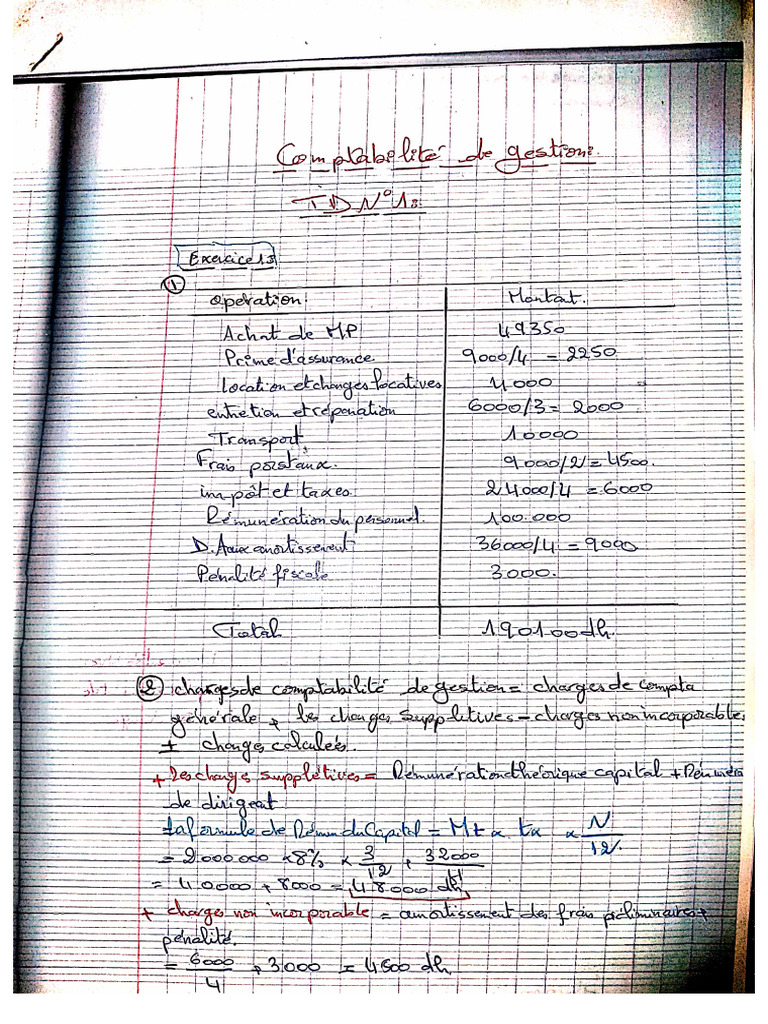 Comptabilité de gestion:
TD N°1:
Exercice 1:
① opération: Montant.
Achat de MP 49350
Prime d'assurance 9000/4 = 2250
Location et charges locatives 4000
entretien et réparation 6000/3 = 2000
Transport 10000
Frais postaux. 9000/2 = 4500.
impôt et taxes: 24000/4 = 6000
Rémunération du personnel. 100.000
D. Aux amortissement 36000/4 = 9000
Pénalité fiscale 3000.
Total 190100 dh.
② charges de comptabilité de gestion = charges de compta
générale + les charges supplétives - charges non incorporables
+ charges calculées.
+ Les charge supplétives = Rémunération théorique capital + Rémunéra
de dirigeat
la formule de Rému du Capital = Mt x tx x N/12
= 2000 000 x 8% x 3/12 + 32000/4
= 40000 + 8000 = 48000 dh
+ charges non incorporable = amortissement des frais préliminaires +
pénalité.
= 6000/4 + 3000 = 4500 dh